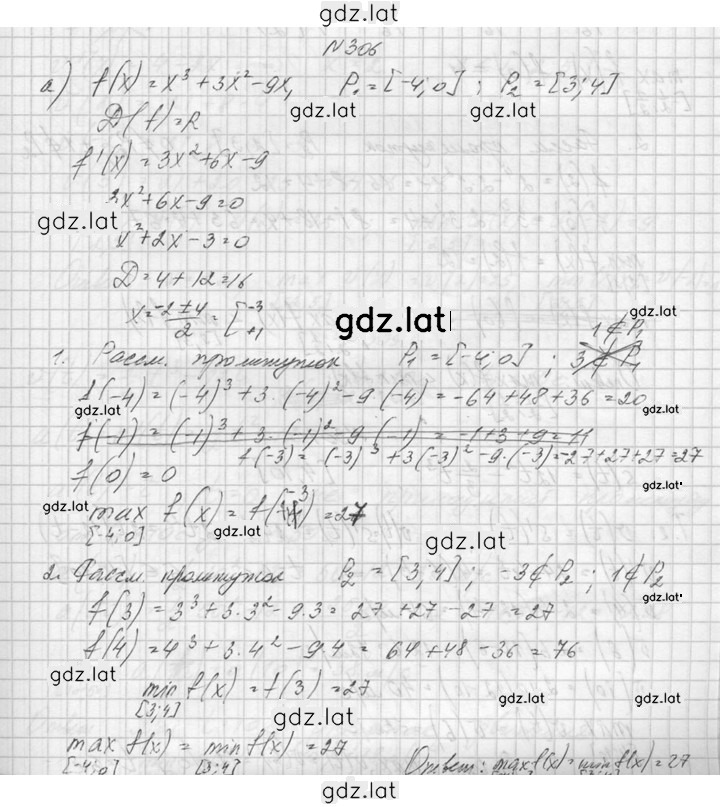 gdz.lat
№306
а) f(x) = x³ + 3x² - 9x, P₁ = [-4; 0]; P₂ = [3; 4]
gdz.lat gdz.lat
D(f) = R
f'(x) = 3x² + 6x - 9
3x² + 6x - 9 = 0
gdz.lat
x² + 2x - 3 = 0
D = 4 + 12 = 16
x = (-2 ± 4)/2 = [-3 +1
gdz.lat
gdz.lat
1 ∉ P₁
1. Рассм. промежуток P₁ = [-4; 0]; 3 ∉ P₁
f(-4) = (-4)³ + 3·(-4)² - 9·(-4) = -64 + 48 + 36 = 20
gdz.lat gdz.lat
f(-1) = (-1)³ + 3·(-1)² - 9(-1) = -1 + 3 + 9 = 11
f(-3) = (-3)³ + 3(-3)² - 9·(-3) = -27 + 27 + 27 = 27
f(0) = 0
gdz.lat
gdz.lat
max f(x) = f(-3) = 27
[-4; 0]
gdz.lat
gdz.lat
2. Рассм. промежуток P₂ = [3; 4]; -3 ∉ P₂; 1 ∉ P₂
gdz.lat
f(3) = 3³ + 3·3² - 9·3 = 27 + 27 - 27 = 27
f(4) = 4³ + 3·4² - 9·4 = 64 + 48 - 36 = 76
gdz.lat
min f(x) = f(3) = 27
[3; 4]
gdz.lat gdz.lat gdz.lat
max f(x) = min f(x) = 27
[-4; 0] [3; 4]
Ответ: max f(x) = min f(x) = 27
gdz.lat